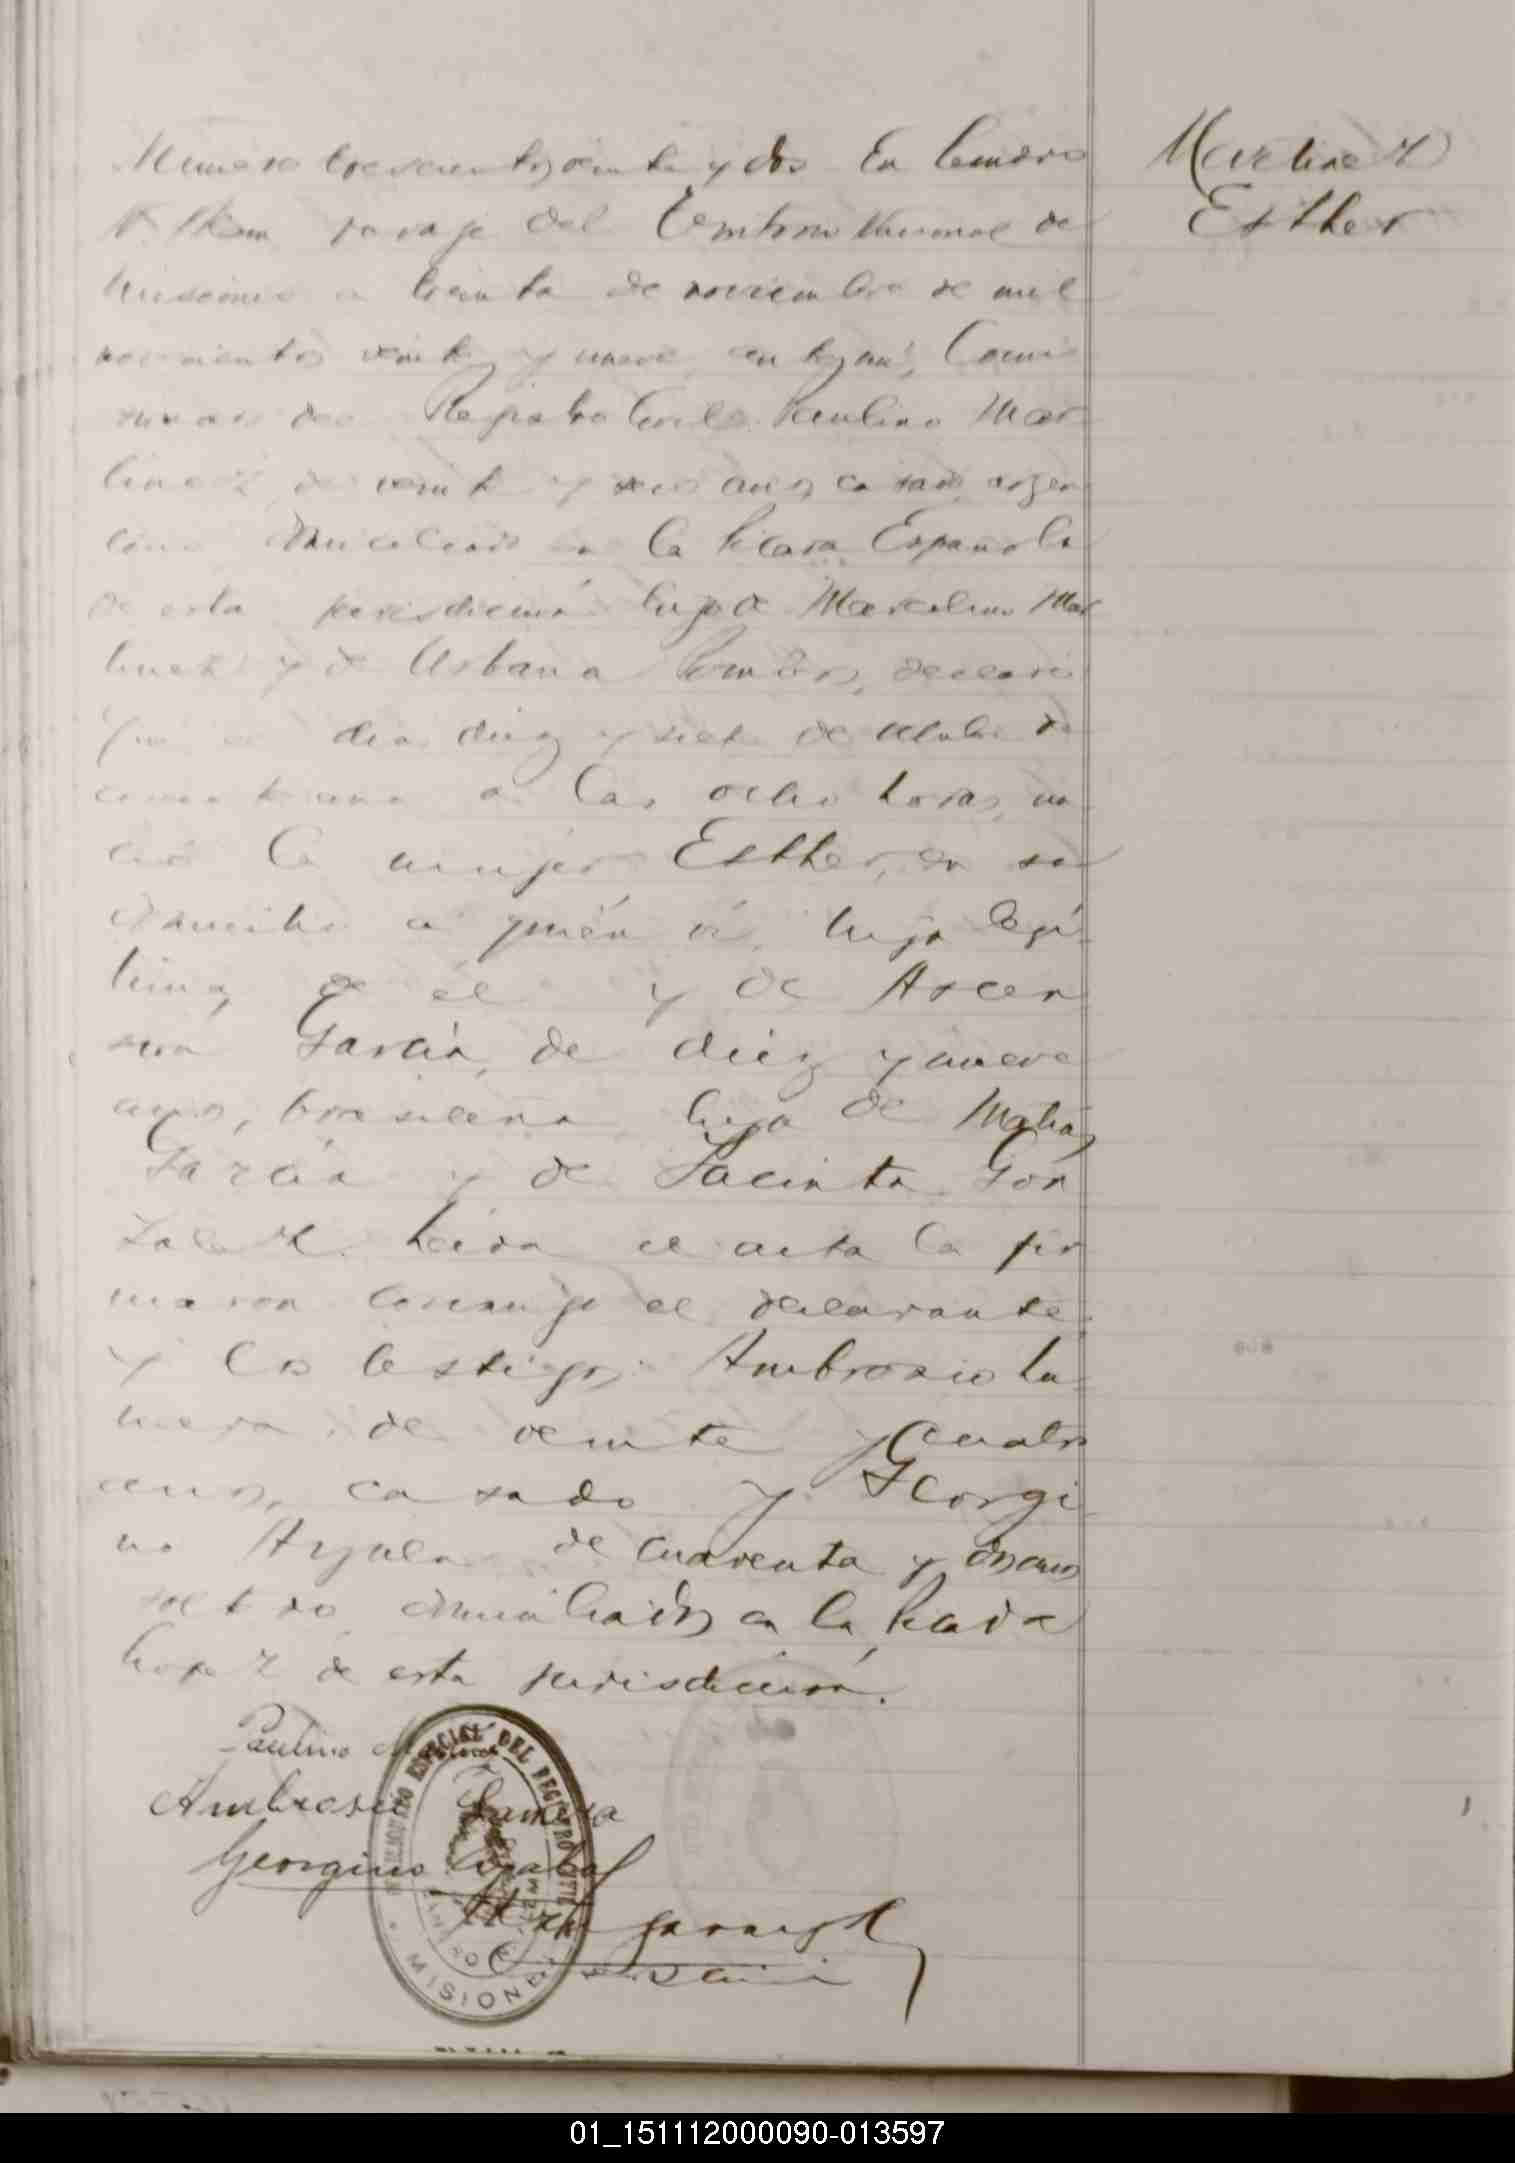 Martinez
Esther
Numero trescientos veinte y dos En Leandro
N. Alem paraje del Territorio Nacional de
Misiones a treinta de noviembre de mil
novecientos veinte y nueve, ante mí, Comi
sionado del Registro Civil Paulino Mar
tinez de veinte y seis años, casado, argen
tino domiciliado en la Picada Española
de esta jurisdicción hijo de Marcelino Mar
tinez y de Urbana declaró
Que el dia diez y siete de octubre del
corriente año a las ocho horas, na
ció la mujer Esther, en su
domicilio a quién ví, hija legí
tima, de él y de Ascen
sión García, de diez y nueve
años, brasilera hija de Matías
García y de Jacinta Gon
zalez. Leida el acta la fir
maron conmigo el declarante
y los testigos: Ambrosio La
mera de veinte y cuatro
años, casado y Georgi
no Ayala de cuarenta y dos años
soltero domiciliados en la Picada
Lopez de esta jurisdicción.
Paulino M
Ambrosio
Georgino
ESPECIAL DEL REGISTRO CIVIL
MISIONES
01_151112000090-013597